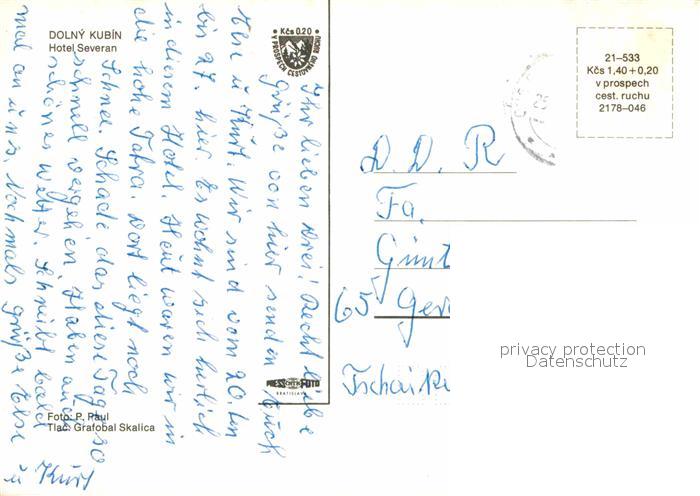 DOLNÝ KUBÍN
Hotel Severan
Kčs 0.20
V PROSPECH CESTOVNÉHO RUCHU
21–533
Kčs 1,40+0,20
v prospech
cest. ruchu
2178–046
Ihr lieben Drei! Recht liebe
Grüße von hier senden Euch
Else u Kurt. Wir sind vom 20. ten
bis 27. hier. Es wohnt sich herrlich
in diesem Hotel. Heut waren wir in
die hohe Tatra. Dort liegt noch
Schnee. Schade das diese Tage so
schnell vergehen. Haben auch
schönes Wetter. Schreibt bald
mal an uns. Nochmals Grüße Else
u Kurt
D. D. R
Fa.
Günt
65 Ger
Tschaike
privacy protection
Datenschutz
PRESSFOTO
BRATISLAVA
Foto: P. Paul
Tlač: Grafobal Skalica